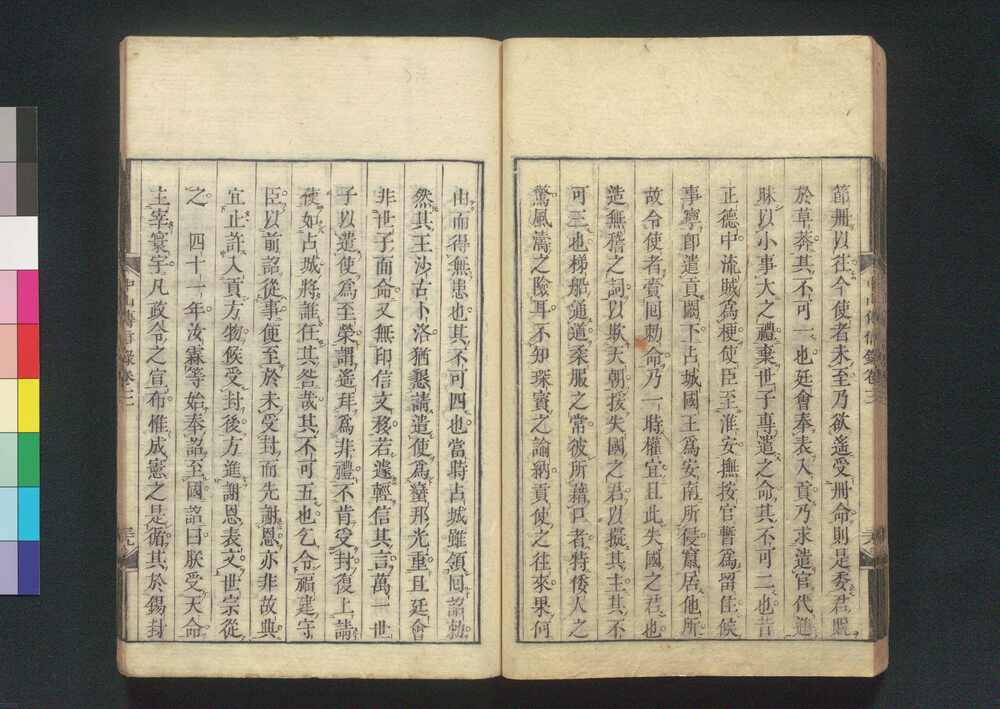 節冊以往今使者未至乃欲遙受冊命則是委君貺
於草莽其不可一也廷會奉表入貢乃求遣官代進
昧以小事大之禮棄世子專遣之命其不可二也昔
正德中流賊爲梗使臣至淮安撫按官暫爲留住候
事寧卽遣貢闕下占城國王爲安南所侵竄居他所
故令使者賫回勅命乃一時權宜且此失國之君也
造無稽之詞以欺天朝援失國之君以擬其主其不
可三也梯船通道柔服之常彼所藉口者特倭人之
驚風濤之險耳不知琛賨之論納貢使之往來果何
中山傳信錄卷三
由而得無患也其不可四也當時占城雖領回詔勅
然其王沙古卜洛猶懇請遣使爲蠻邦光重且廷會
非世子面命又無印信文移若遽輕信其言萬一世
子以遣使爲至榮謂遙拜爲非禮不肯受封復上請
使如占城將誰任其咎哉其不可五也乞令福建守
臣以前詔從事便至於未受封而先謝恩亦非故典
宜止許入貢方物候受封後方進謝恩表文世宗從
之　四十一年汝霖等始奉詔至國詔曰朕受天命
主宰寰宇凡政令之宣布惟成憲之是循其於錫封
中山傳信錄卷三